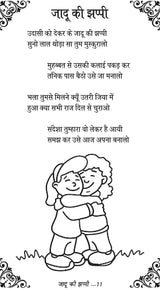 जादू की झप्पी
उदासी को देकर के जादू की झप्पी
सुनो लाल थोड़ा सा तुम मुस्कुरालो
मुहब्बत से उसकी कलाई पकड़ कर
तनिक पास बैठो उसे जा मनालो
भला तुमसे मिलने क्यूँ उतरी जिया में
हुआ क्या सभी राज दिल से चुराओ
संदेशा तुम्हारा वो लेकर है आयी
समझ कर उसे आज अपना बनालो
जादू की झप्पी ...11